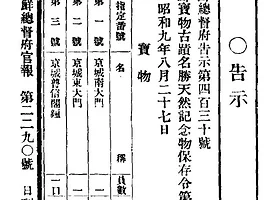 ○告示
總督府告示第四百三十號
寶物古蹟名勝天然記念物保存令第
昭和九年八月二十七日
寶物
指定番號 名稱 員數
第一號 京城南大門 一
第二號 京城東大門 一
第三號 京城普信閣鐘 一口
鮮總督府官報 第二二九〇號